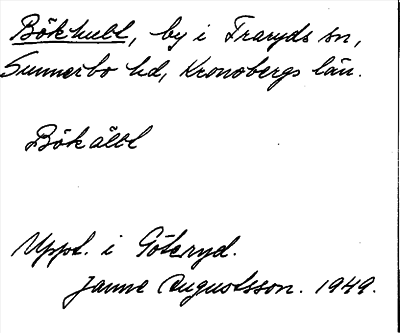 Bökhult, by i Traryds sn,
Sunnerbo hd, Kronobergs län.
Bökält
Uppt. i Göteryd.
Janne Augustsson. 1949.